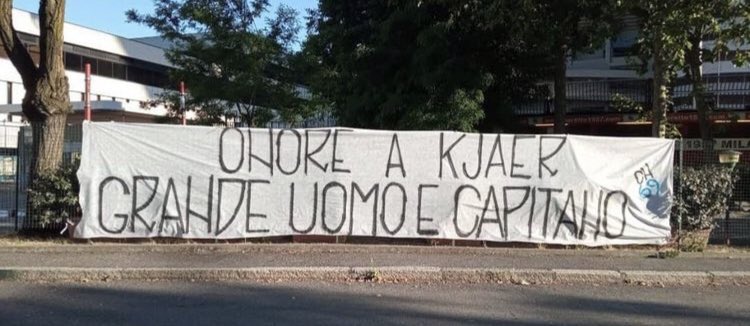 ONORE A KJAER
GRANDE UOMO E CAPITANO
CN
69
MILA